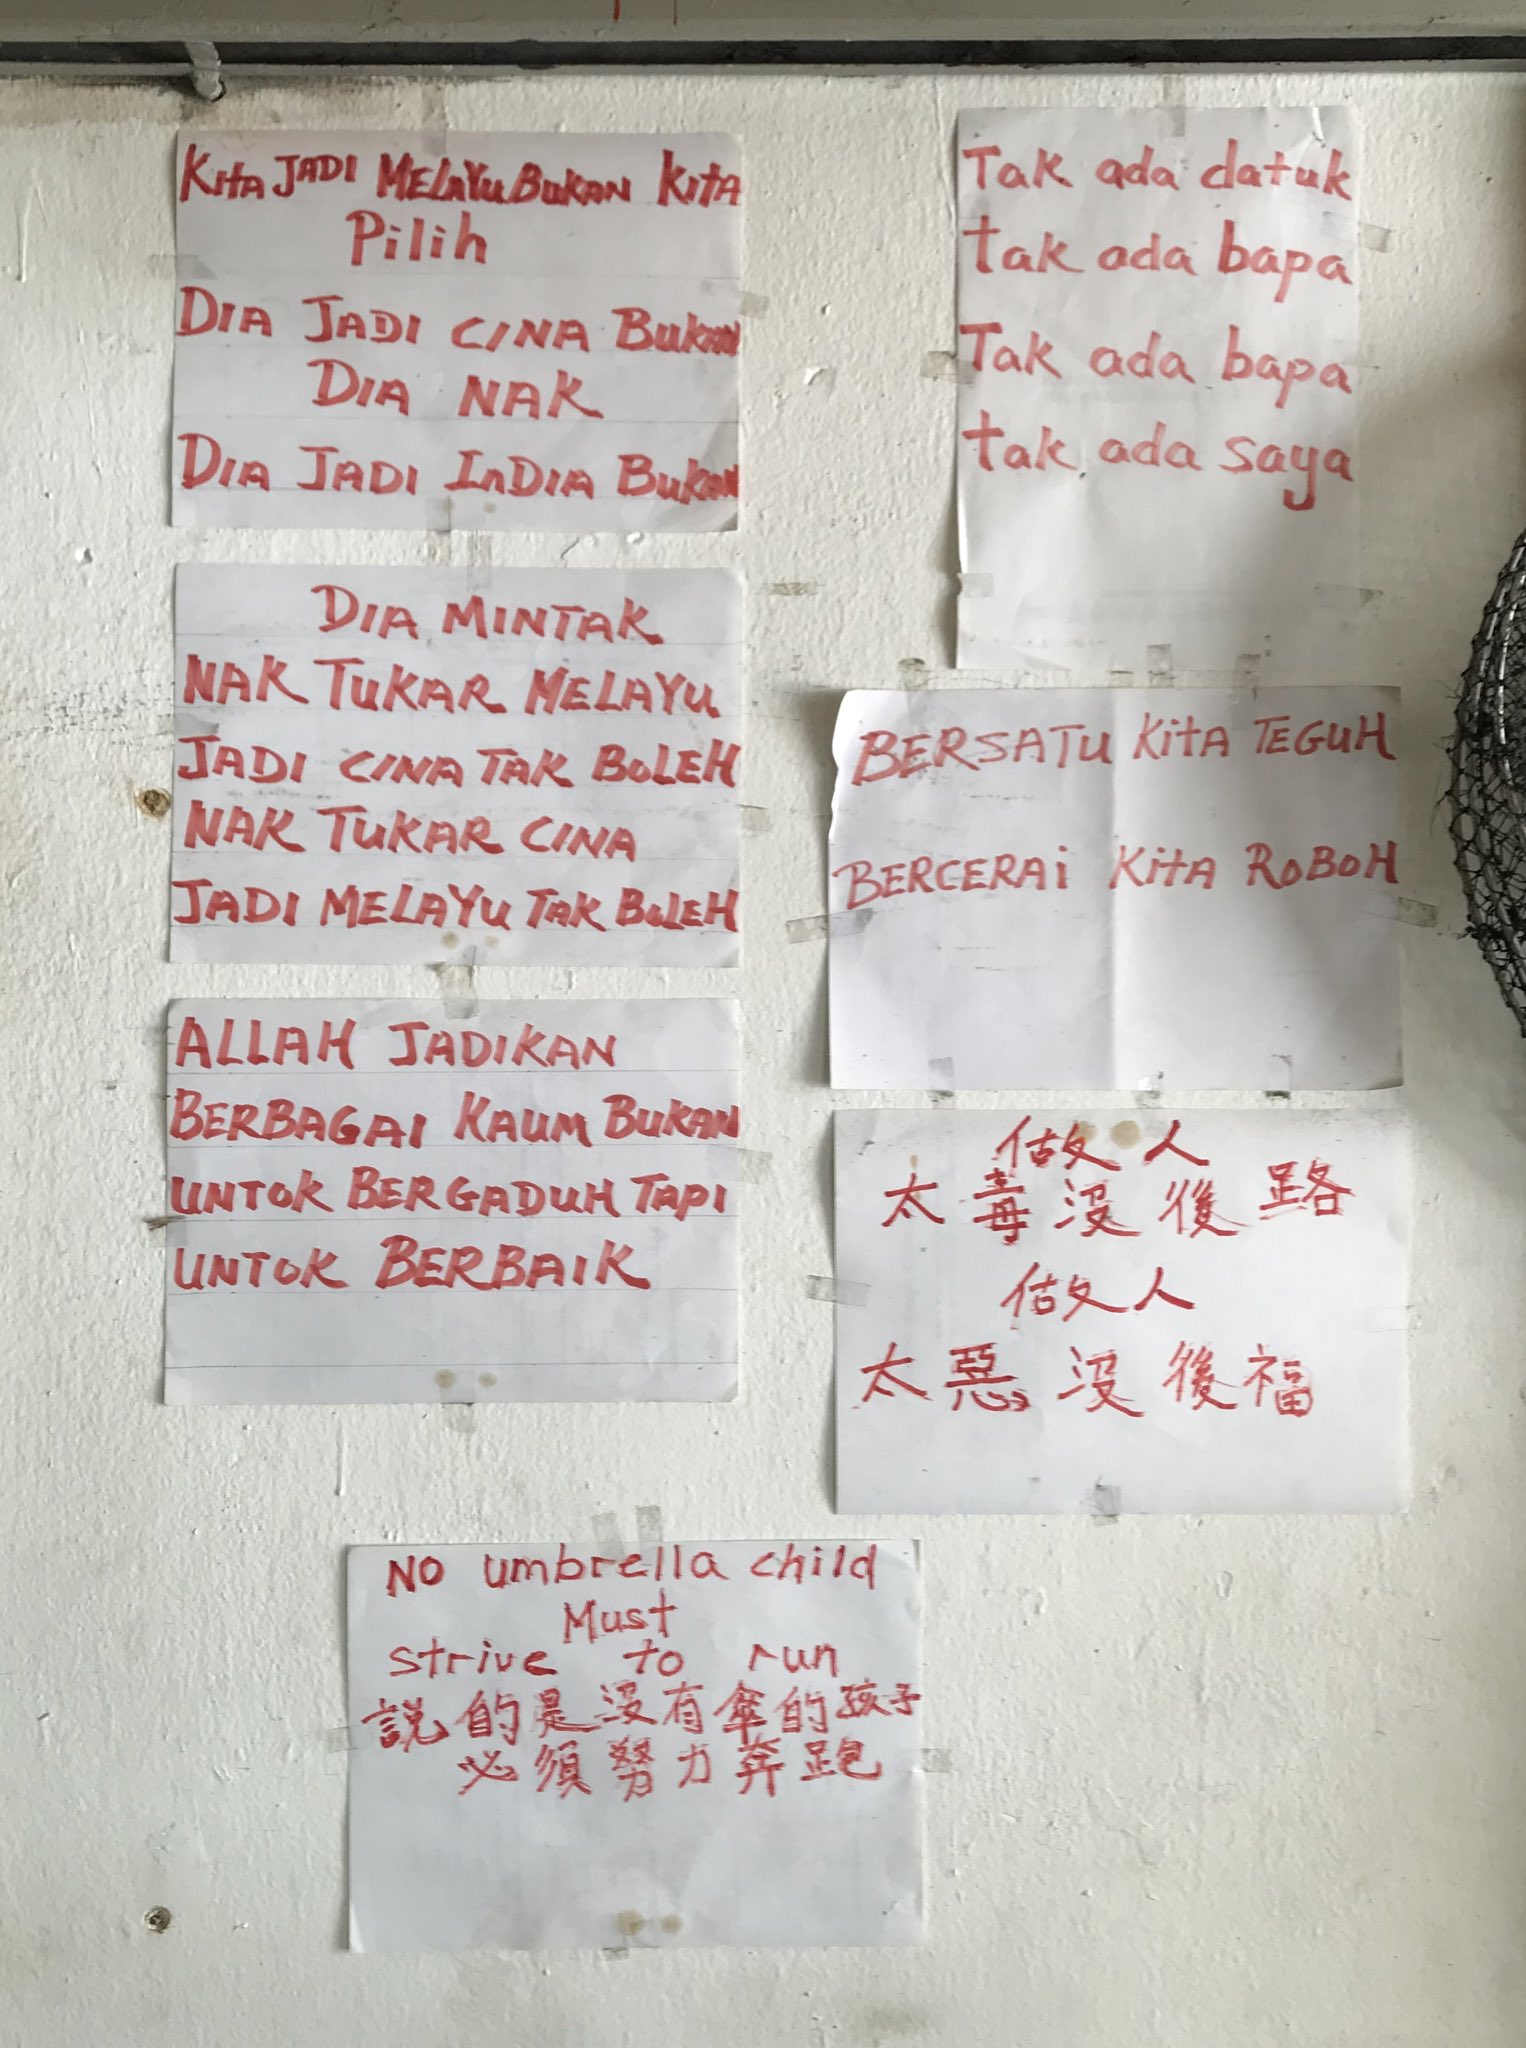 KITA JADI MELAYU BUKAN KITA
Pilih
DIA JADI CINA BUKAN
DIA NAK
DIA JADI INDIA BUKAN
DIA MINTAK
NAK TUKAR MELAYU
JADI CINA TAK BOLEH
NAK TUKAR CINA
JADI MELAYU TAK BOLEH
ALLAH JADIKAN
BERBAGAI KAUM BUKAN
UNTOK BERGADUH TAPI
UNTOK BERBAIK
Tak ada datuk
tak ada bapa
Tak ada bapa
tak ada saya
BERSATU KITA TEGUH
BERCERAI KITA ROBOH
做人
太毒沒後路
做人
太惡沒後福
NO umbrella child
Must
strive to run
說的是沒有傘的孩子
必須努力奔跑